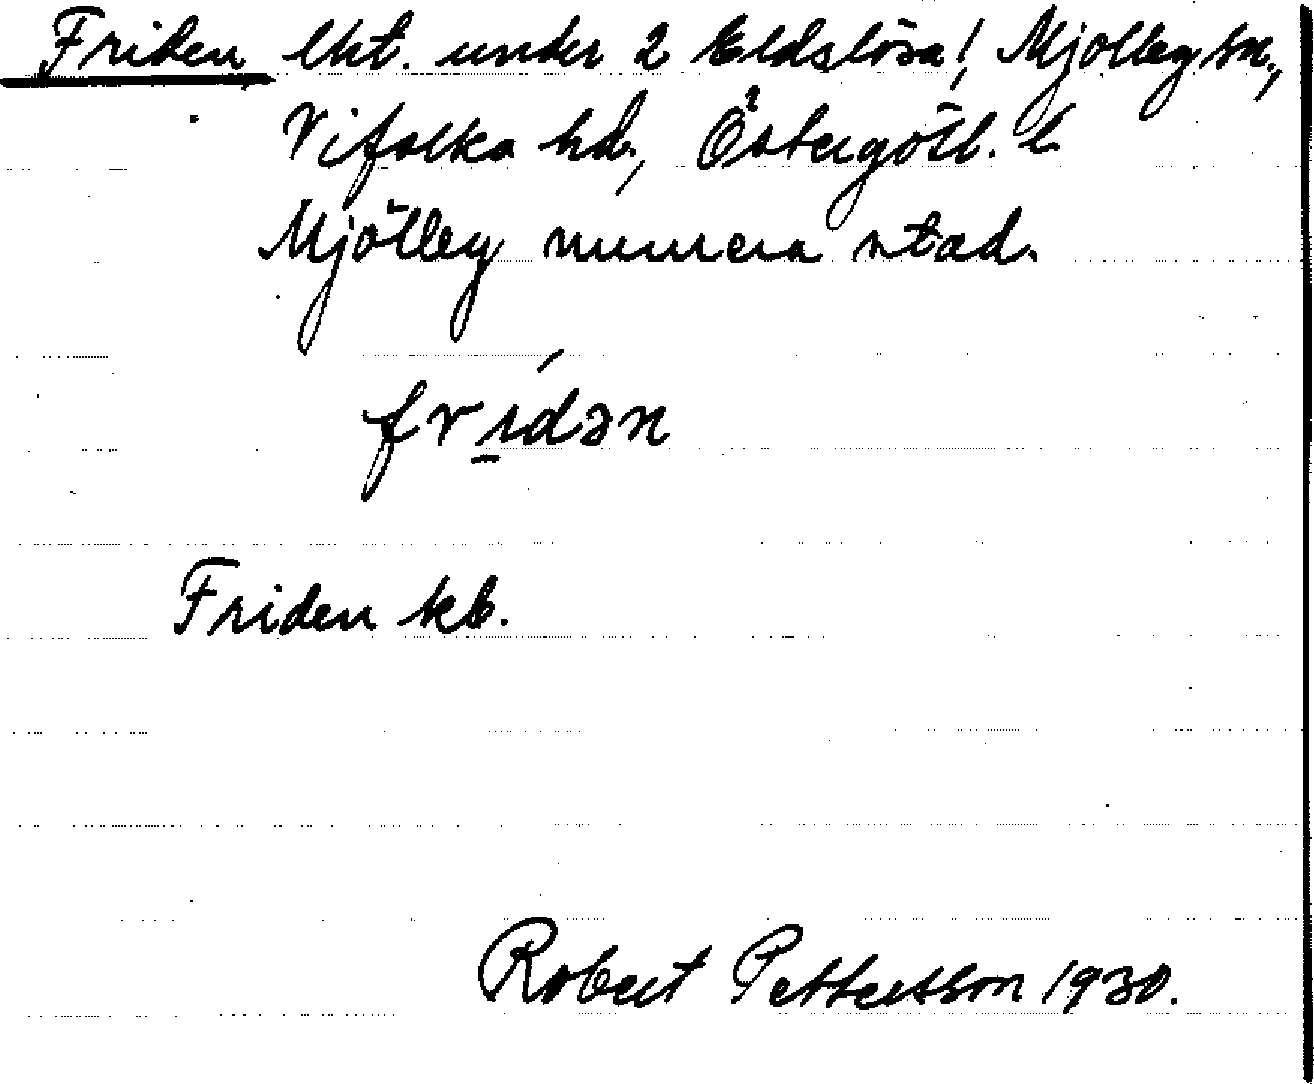 Friden lht. under 2 Eldslösa!, Mjölby sn.,
Vifolka hd, Östergötl. l.
Mjölby numera stad.
frídən
Friden kb.
Robert Pettersson 1930.